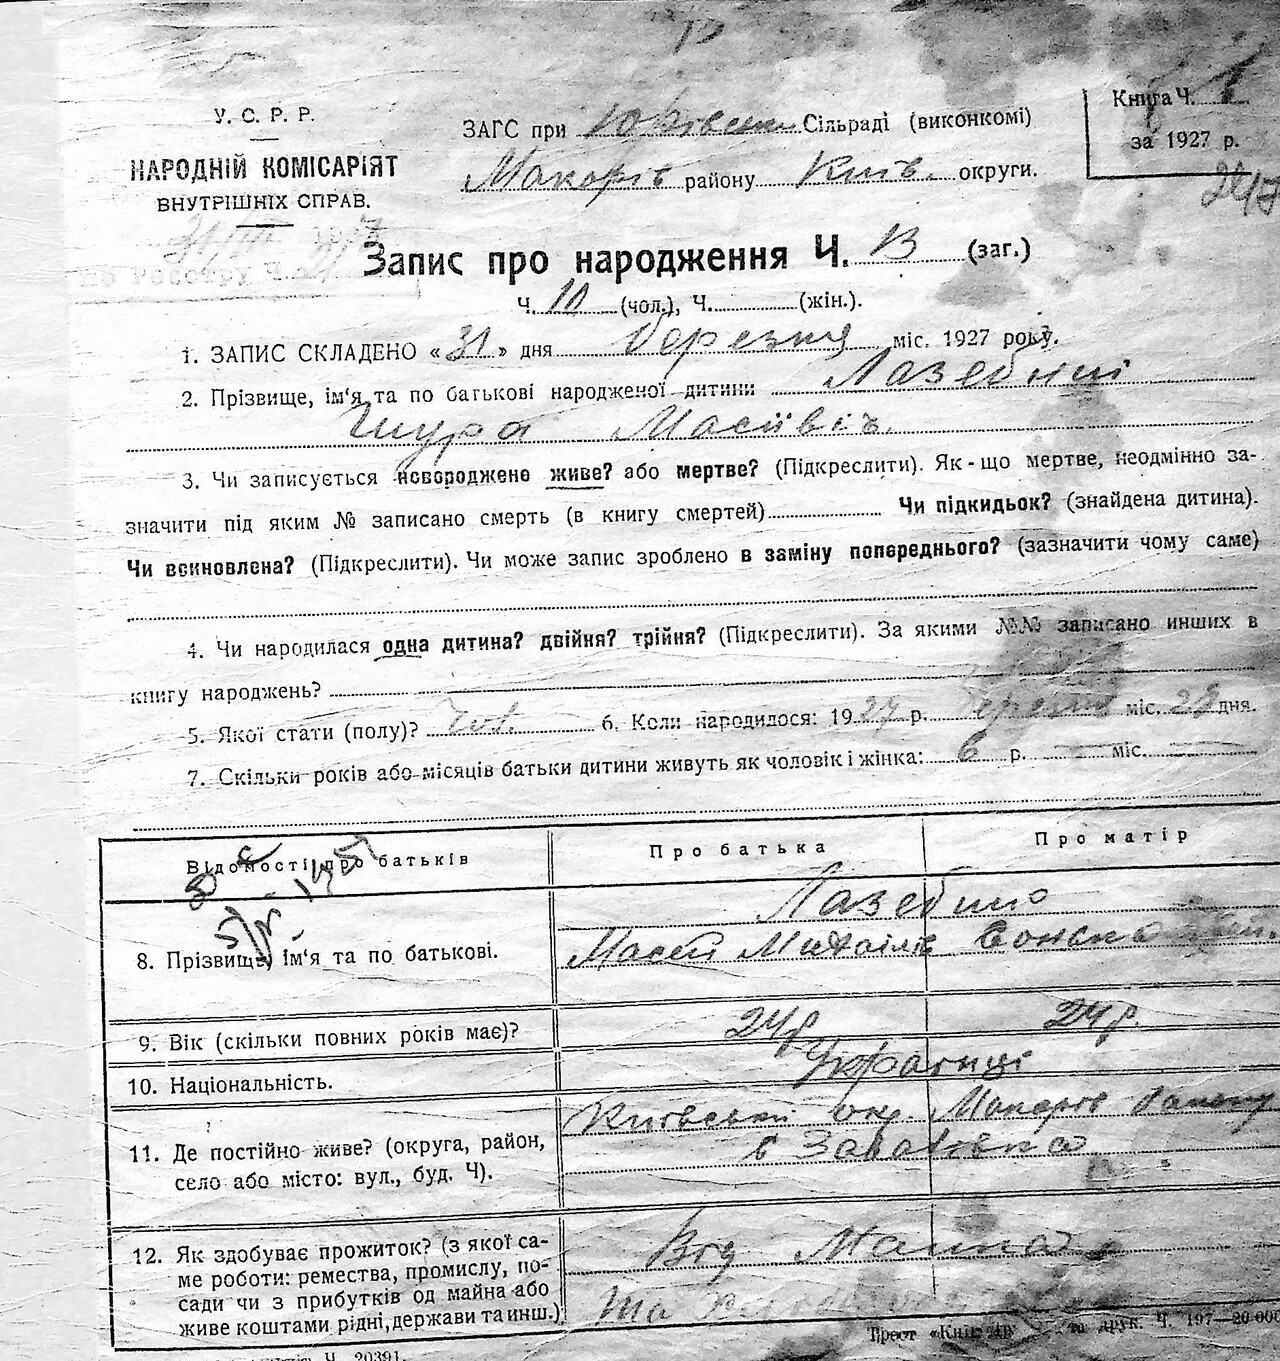 У. С. Р. Р.
НАРОДНІЙ КОМІСАРІЯТ
ВНУТРІШНІХ СПРАВ.
ЗАГС при Сільраді (виконкомі)
Макарів району Київ. округи.
Книга Ч. 1
за 1927 р.
Запис про народження Ч. 13 (заг.)
Ч. 10 (чол.), Ч. (жін.).
1. ЗАПИС СКЛАДЕНО «31» дня березня міс. 1927 року.
2. Прізвище, ім‘я та по батькові народженої дитини Лазебний
Шура Масіїв
3. Чи записується новороджене живе? або мертве? (Підкреслити). Як-що мертве, неодмінно за-
значити під яким № записано смерть (в книгу смертей) Чи підкидьок? (знайдена дитина).
Чи всиновлена? (Підкреслити). Чи може запис зроблено в заміну попереднього? (зазначити чому саме)
4. Чи народилася одна дитина? двійня? трійня? (Підкреслити). За якими №№ записано инших в
книгу народжень?
5. Якої стати (полу)? чол. 6. Коли народилося: 1927 р. березня міс. 28 дня.
7. Скільки років або місяців батьки дитини живуть як чоловік і жінка: 6 р. — міс. —
Відомості про батьків
Про батька
Про матір
8. Прізвище, ім‘я та по батькові.
Лазебний
Масей Михайлів
9. Вік (скільки повних років має)?
24 р
24 р.
10. Національність.
Українці
11. Де постійно живе? (округа, район,
село або місто: вул., буд. Ч).
Київської окр. Макарів району
с Завалівка
12. Як здобуває прожиток? (з якої са-
ме роботи: ремества, промислу, по-
сади чи з прибутків од майна або
живе коштами рідні, держави та инш.)
Від Майна
та
друк. Ч. 197—20 000
Ч. 20391.